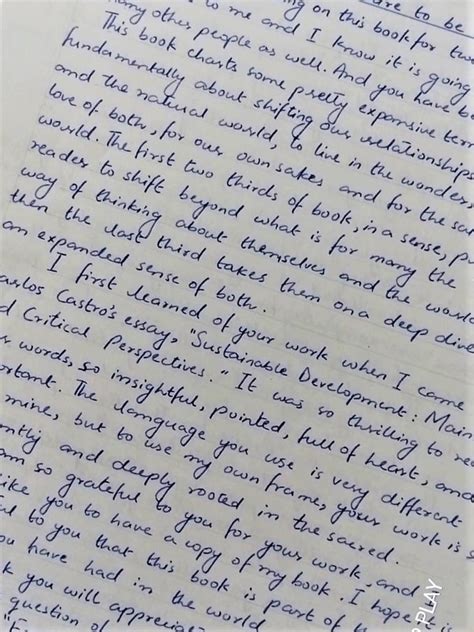 are to be
ng on this book for two
to me and I know it is going
many other people as well. And you have be
This book charts some pretty expansive terr
fundamentally about shifting our relationships
and the natural world, to live in the wonder,
love of both, for our own sakes and for the sa
world. The first two thirds of book, in a sense, p
reader to shift beyond what is for many the
way of thinking about themselves and the world
then the last third takes them on a deep dive
an expanded sense of both.
I first learned of your work when I came
arlos Castro's essay, "Sustainable Development: Main
d Critical Perspectives." It was so thrilling to re
r words, so insightful, pointed, full of heart, and
ortant. The language you use is very different
mine, but to use my own frame, your work is s
ntly and deeply rooted in the sacred.
am so grateful to you for your work, and
like you to have a copy of my book. I hope it
ul to you that this book is part of
ou have had in the world
k you will appreciat
question of
PLAY